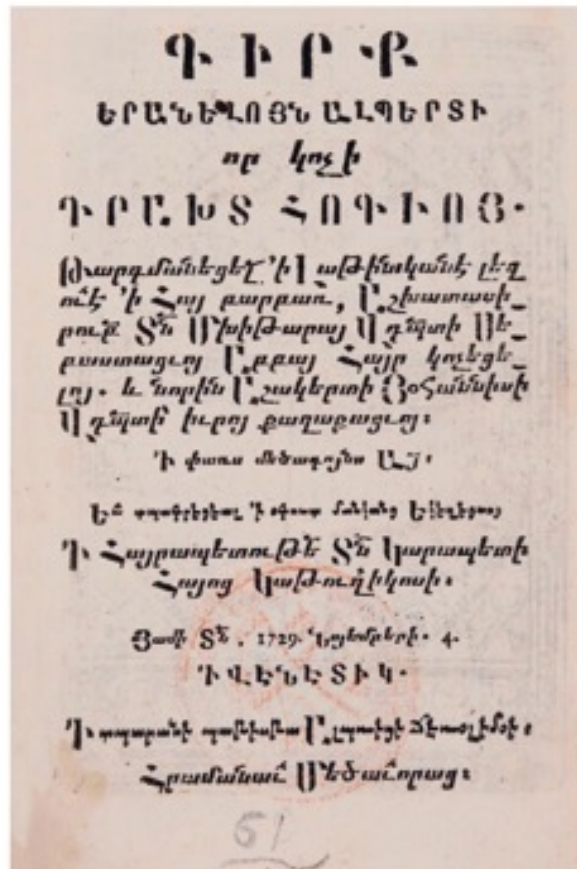 ԳԻՐՔ
ԵՐԱՆԵԼՈՅՆ ԱԼՊԵՐՏԻ
որ կոչի
ԴՐԱԽՏ ՀՈԳԻՈՅ.
Թարգմանեցել՝ 'ի Լաթինականէ լեզ
ուէ 'ի Հայ բարբառ, Աշխատասի_
րուբ՟ Տն՟ Մխիթարայ Վրդպտի Սե_
բաստացւոյ Աբբայ Հայր կոչեցե_
լոյ. և նորին Աշակերտի Յօհաննիսի
Վրդպտի՟ իւրոյ քաղաքացւոյ։
'Ի փառս մեծագոյնս ԱՅ։
Եւ՟ տպագրեցեալ 'ի օգուտ մանկանց Եկեղեցւոյ
'Ի Հայրապետութե՟ Տն՟ Կարապետի
Հայոց Կաթուղիկոսի։
Յամի Տն՟. 1729. Նոյեմբերի. 4.
'Ի ՎԷՆԷՏԻԿ.
'Ի տպարանի
Հրամանաւ՟ Մեծաւորաց։
61